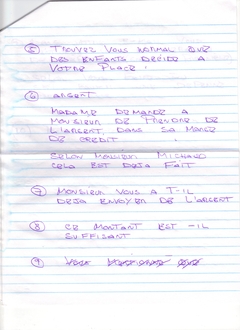 ⑤ TROUVEZ VOUS NORMAL QUE
DES ENFANTS DÉCIDE A
VOTRE PLACE !
⑥ ARGENT
MADAME DEMANDE A
MONSIEUR DE PRENDRE DE
L'ARGENT, DANS SA MARGE
DE CREDIT
SELON MONSIEUR MICHAUD
CELA EST DEJA FAIT
⑦ MONSIEUR VOUS A T-IL
DEJA ENVOYER DE L'ARGENT
⑧ CE MONTANT EST-IL
SUFFISANT
⑨